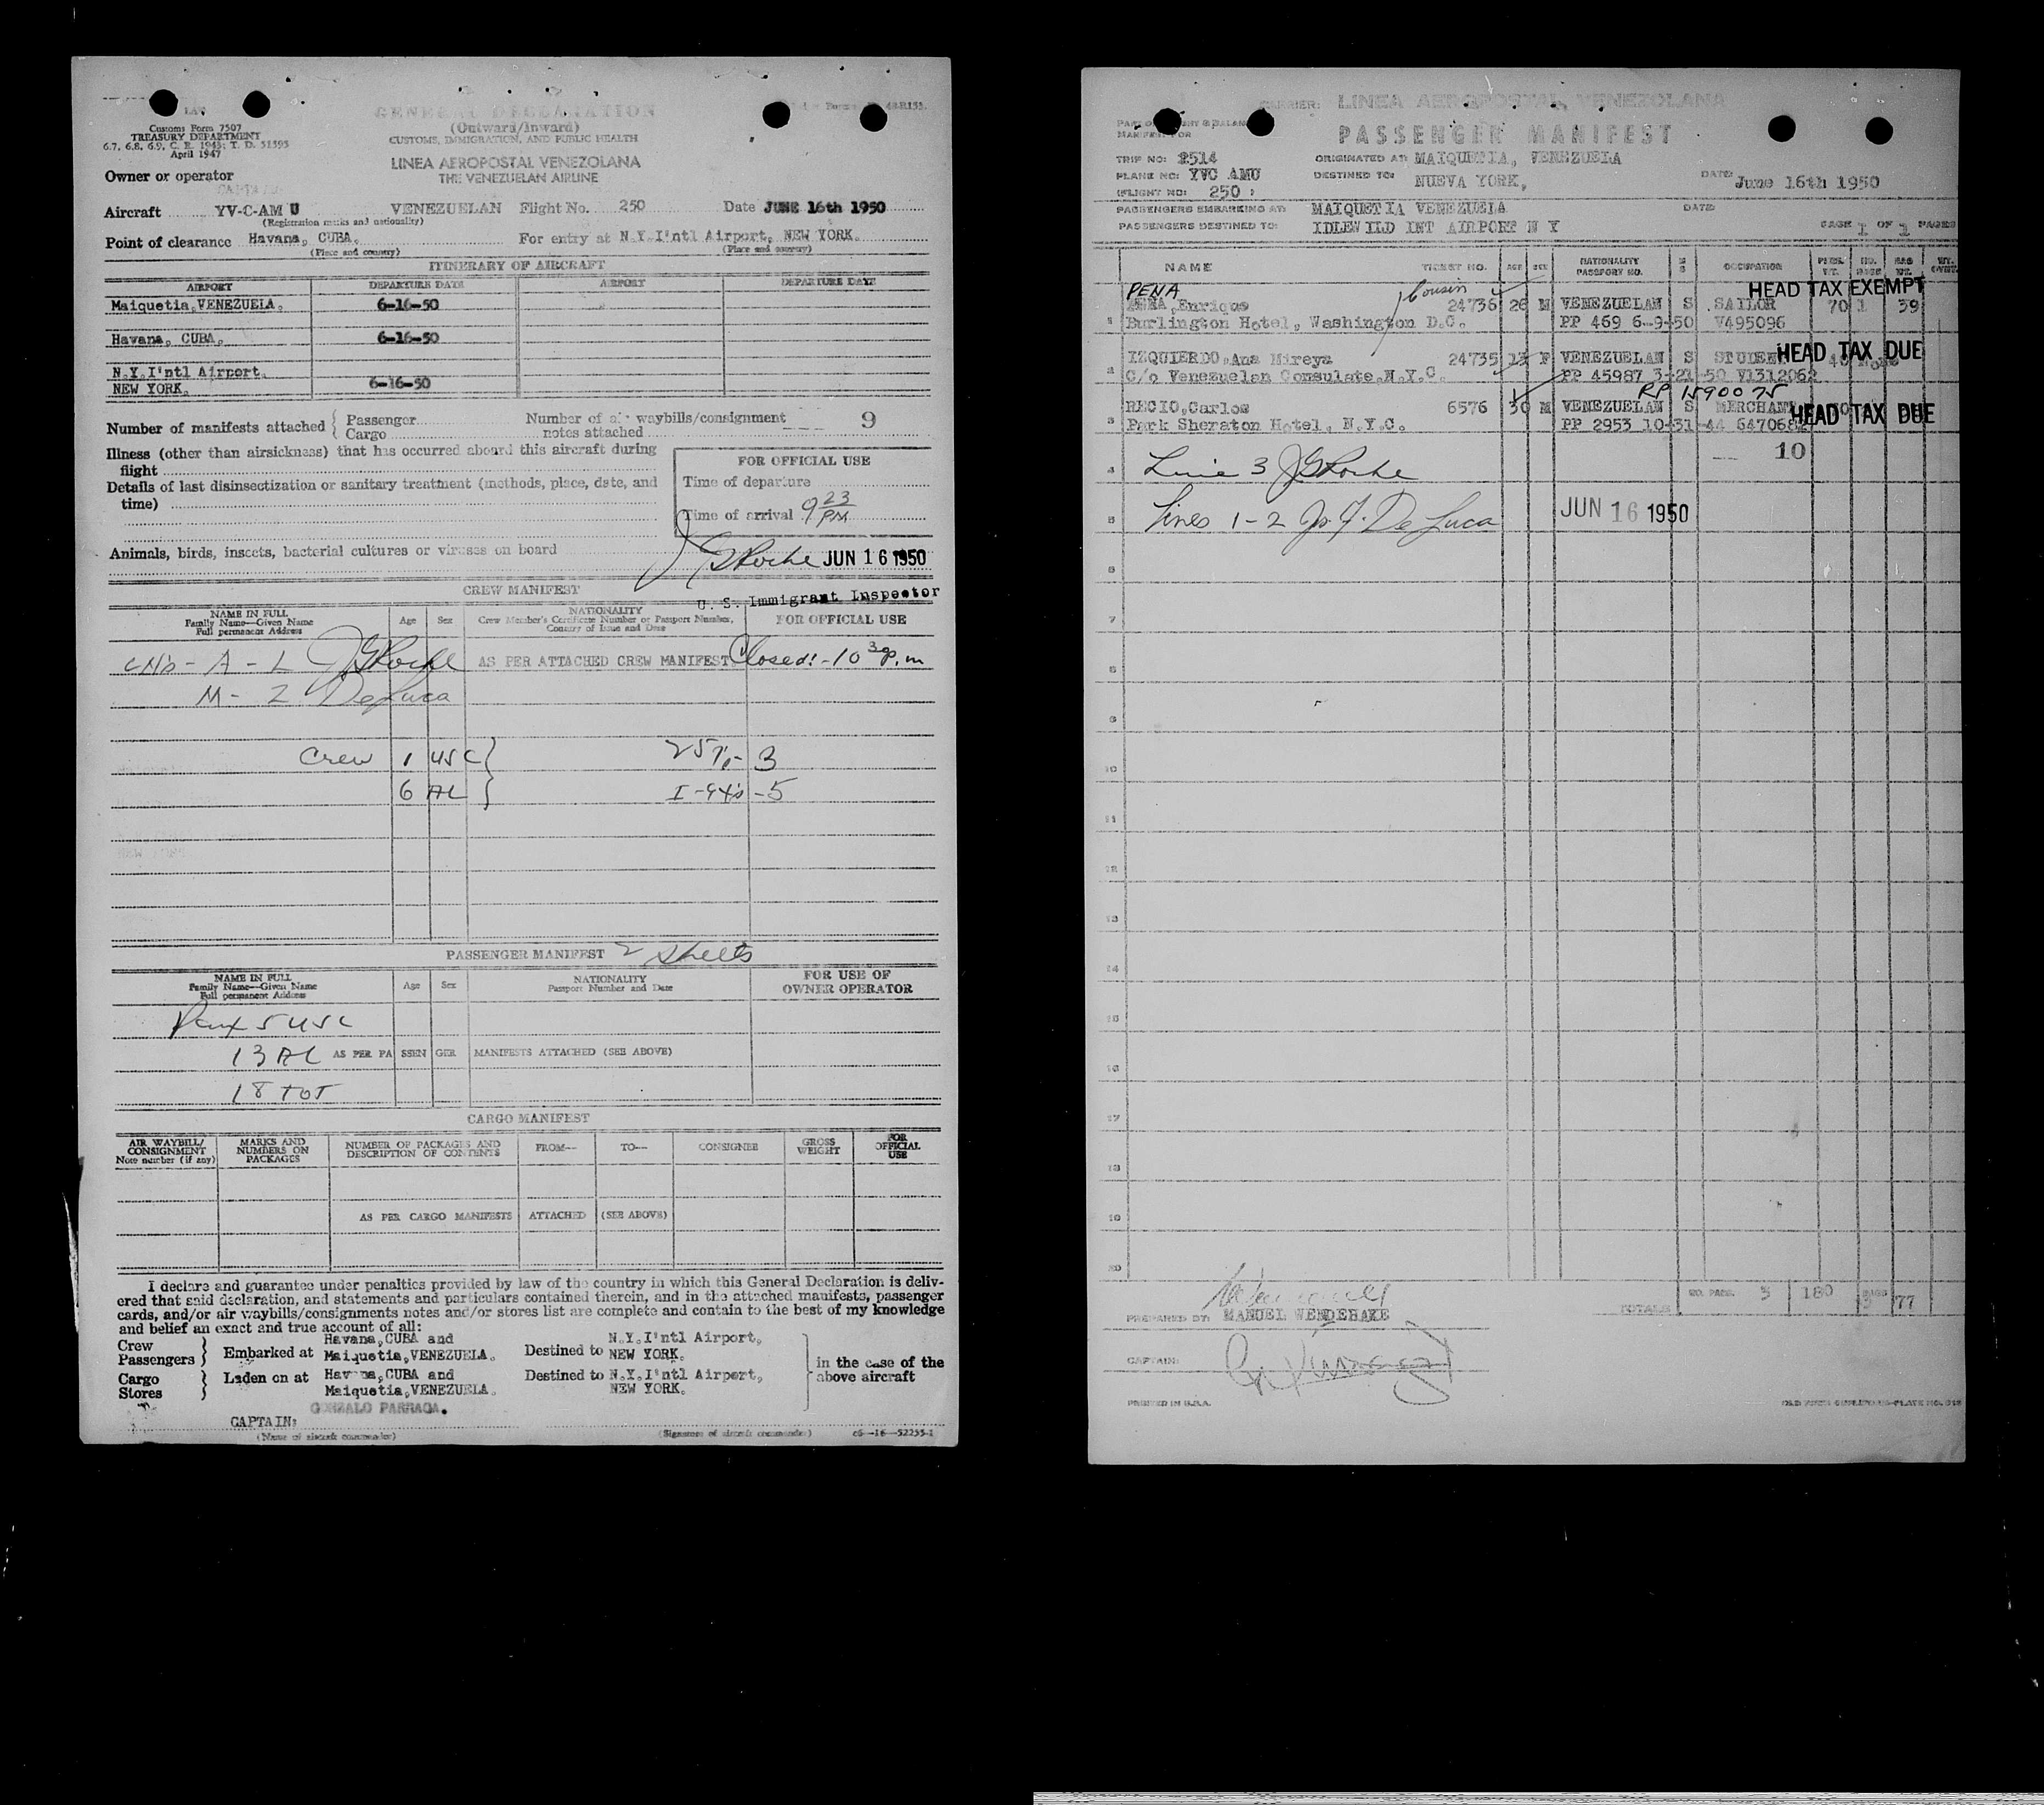 LAV
Customs Form 7507
TREASURY DEPARTMENT
6.7, 6.8, 6.9, C. R. 1943; T. D. 51393
April 1947
GENERAL DECLARATION
(Outward/Inward)
CUSTOMS, IMMIGRATION, AND PUBLIC HEALTH
LINEA AEROPOSTAL VENEZOLANA
THE VENEZUELAN AIRLINE
Owner or operator
Aircraft YV-C-AM U VENEZUELAN Flight No. 250 Date JUNE 16th 1950
(Registration marks and nationality)
Point of clearance Havana, CUBA. For entry at N.Y.I'ntl Airport, NEW YORK.
(Place and country) (Place and country)
ITINERARY OF AIRCRAFT
AIRPORT DEPARTURE DATE AIRPORT DEPARTURE DATE
Maiquetia,VENEZUELA. 6-16-50
Havana, CUBA. 6-16-50
N.Y.I'ntl Airport.
NEW YORK. 6-16-50
Number of manifests attached { Passenger
Cargo
Number of air waybills/consignment
notes attached 9
Illness (other than airsickness) that has occurred aboard this aircraft during
flight
Details of last disinsectization or sanitary treatment (methods, place, date, and
time)
FOR OFFICIAL USE
Time of departure
Time of arrival 9 23 PM
Animals, birds, insects, bacterial cultures or viruses on board
JGRoche JUN 16 1950
U. S. Immigrant Inspector
CREW MANIFEST
NAME IN FULL
Family Name—Given Name
Full permanent Address
Age Sex
NATIONALITY
Crew Member's Certificate Number or Passport Number,
Country of Issue and Date
FOR OFFICIAL USE
A - L JGRoche AS PER ATTACHED CREW MANIFEST Closed:-10 30 p.m
M - Z DeLuca
Crew 1 USC } 3
6 AL } I-94's -5
PASSENGER MANIFEST 2 Sheets
NAME IN FULL
Family Name—Given Name
Full permanent Address
Age Sex
NATIONALITY
Passport Number and Date
FOR USE OF
OWNER OPERATOR
Pax 5 USC
13 AL AS PER PASSENGER MANIFESTS ATTACHED (SEE ABOVE)
18 TOT
CARGO MANIFEST
AIR WAYBILL/
CONSIGNMENT
Note number (if any)
MARKS AND
NUMBERS ON
PACKAGES
NUMBER OF PACKAGES AND
DESCRIPTION OF CONTENTS
FROM— TO— CONSIGNEE
GROSS
WEIGHT
FOR
OFFICIAL
USE
AS PER CARGO MANIFESTS ATTACHED (SEE ABOVE)
I declare and guarantee under penalties provided by law of the country in which this General Declaration is deliv-
ered that said declaration, and statements and particulars contained therein, and in the attached manifests, passenger
cards, and/or air waybills/consignments notes and/or stores list are complete and contain to the best of my knowledge
and belief an exact and true account of all:
Crew
Passengers } Embarked at Havana,CUBA and
Maiquetia,VENEZUELA. Destined to N.Y.I'ntl Airport,
NEW YORK.
Cargo
Stores } Laden on at Havana,CUBA and
Maiquetia,VENEZUELA. Destined to N.Y.I'ntl Airport,
NEW YORK.
in the case of the
above aircraft
GONZALO PARRAGA.
CAPTAIN:
(Name of aircraft commander) (Signature of aircraft commander) c6—16—52255-1
CARRIER: LINEA AEROPOSTAL VENEZOLANA
PASSENGER MANIFEST
TRIP NO: 2514 ORIGINATED AT: MAIQUETIA, VENEZUELA
PLANE NO: YVC AMU DESTINED TO: NUEVA YORK, DATE: June 16th 1950
(FLIGHT NO: 250 )
PASSENGERS EMBARKING AT: MAIQUETIA VENEZUELA DATE:
PASSENGERS DESTINED TO: IDLEWILD INT AIRPORT N Y PAGE 1 OF 1 PAGES
NAME TICKET NO. AGE SEX NATIONALITY PASSPORT NO. OCCUPATION
PENA Cousin HEAD TAX EXEMPT
1 Enrique 24736 26 M VENEZUELAN S SAILOR 70 1 39
Burlington Hotel, Washington D.C. PP 469 6-9-50 V495096
2 IZQUIERDO,Ana Mireya 24735 13 F VENEZUELAN S HEAD TAX DUE
C/o Venezuelan Consulate.N.Y.C. PP 45987 3-21-50 V1312062
RP 1590075
3 RECIO,Carlos 6576 30 M VENEZUELAN S MERCHANT HEAD TAX DUE
Park Sheraton Hotel, N.Y.C. PP 2953 10-31-44
10
4 Line 3 JGRoche
5 Lines 1-2 Jo. F. De Luca JUN 16 1950
6
7
8
9
10
11
12
13
14
15
16
17
18
19
20
TOTALS NO. PASS. 3 180 BAGS 3 77
PREPARED BY: MANUEL WENDEHAKE
CAPTAIN:
PRINTED IN U.S.A.